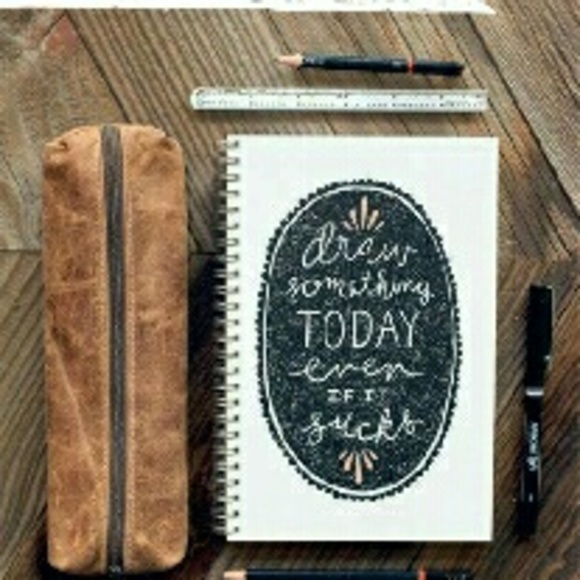 draw
something
TODAY
even
IF IT
sucks